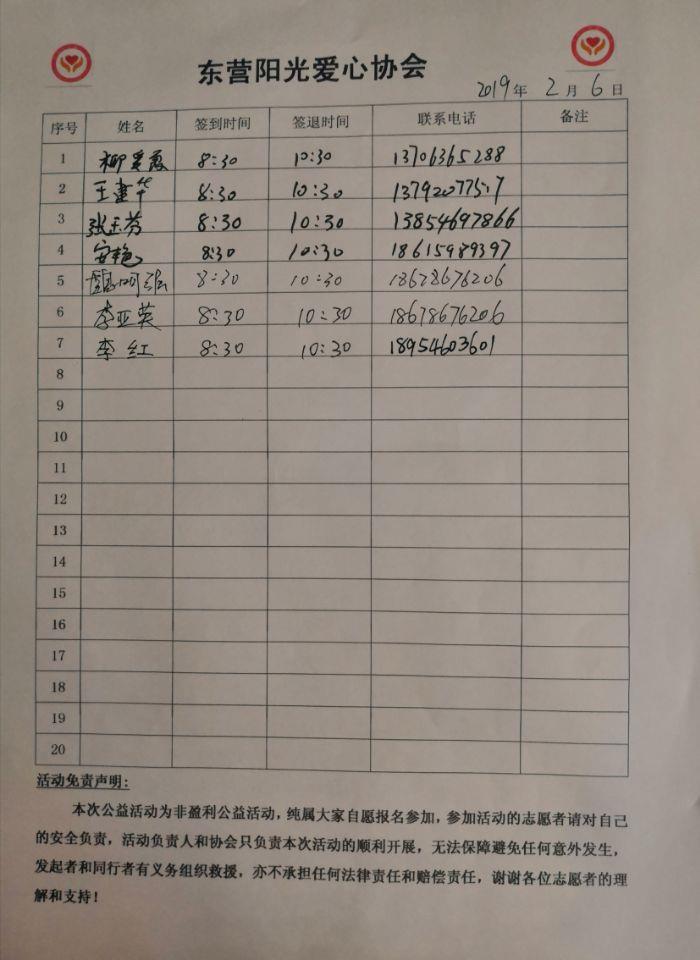 东营阳光爱心协会
2019年 2月 6日
序号 姓名 签到时间 签退时间 联系电话 备注
1 柳 霞 8:30 10:30 13706365288
2 王建华 8:30 10:30
3 张玉芬 8:30 10:30 13854697866
4 安艳 8:30 10:30 18615989397
5 8:30 10:30 18678676206
6 李亚英 8:30 10:30 18678676206
7 李红 8:30 10:30 18954603601
8
9
10
11
12
13
14
15
16
17
18
19
20
活动免责声明:
本次公益活动为非盈利公益活动，纯属大家自愿报名参加，参加活动的志愿者请对自己
的安全负责，活动负责人和协会只负责本次活动的顺利开展，无法保障避免任何意外发生，
发起者和同行者有义务组织救援，亦不承担任何法律责任和赔偿责任，谢谢各位志愿者的理
解和支持！